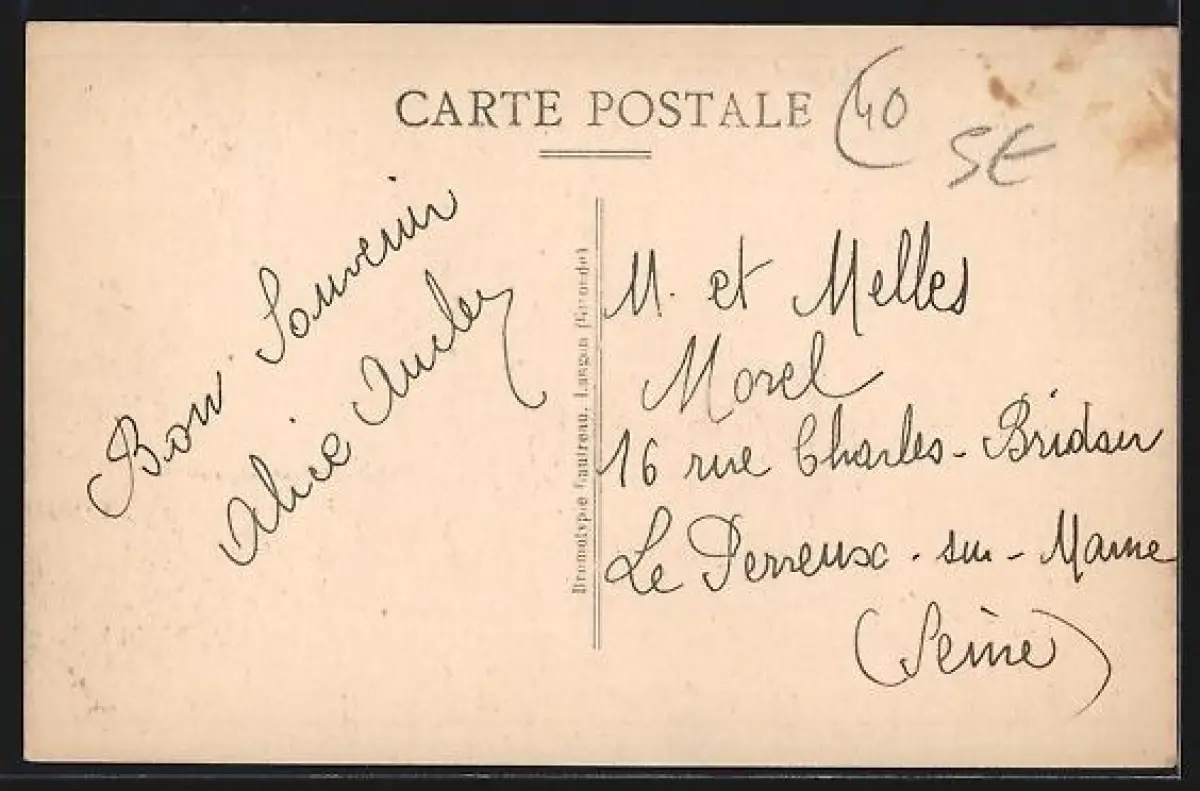 CARTE POSTALE
(40
5€
Bon Souvenir
Alice
Bromotypie Gautreau, Langon (Gironde)
M. et Melles
Morel
16 rue Charles-Bridou
Le Perreux-sur-Marne
(Seine)